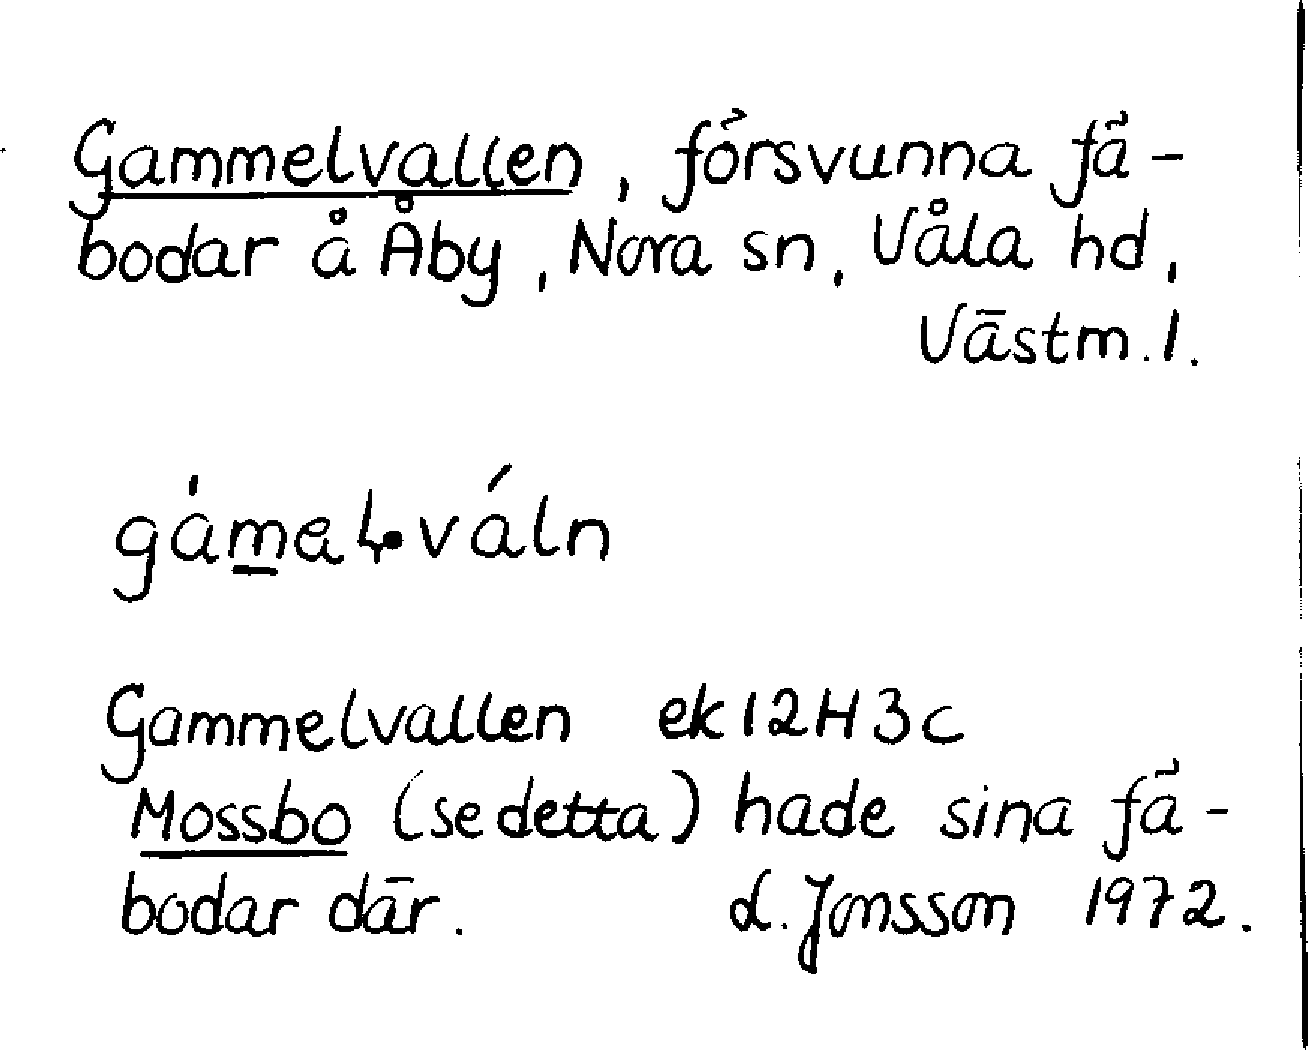 Gammelvallen, försvunna fä-
bodar å Åby, Nora sn, Våla hd,
Västm. l.
gàmal·váln
Gammelvallen ek 12H3c
Mossbo (se detta) hade sina fä-
bodar där. L. Jonsson 1972.